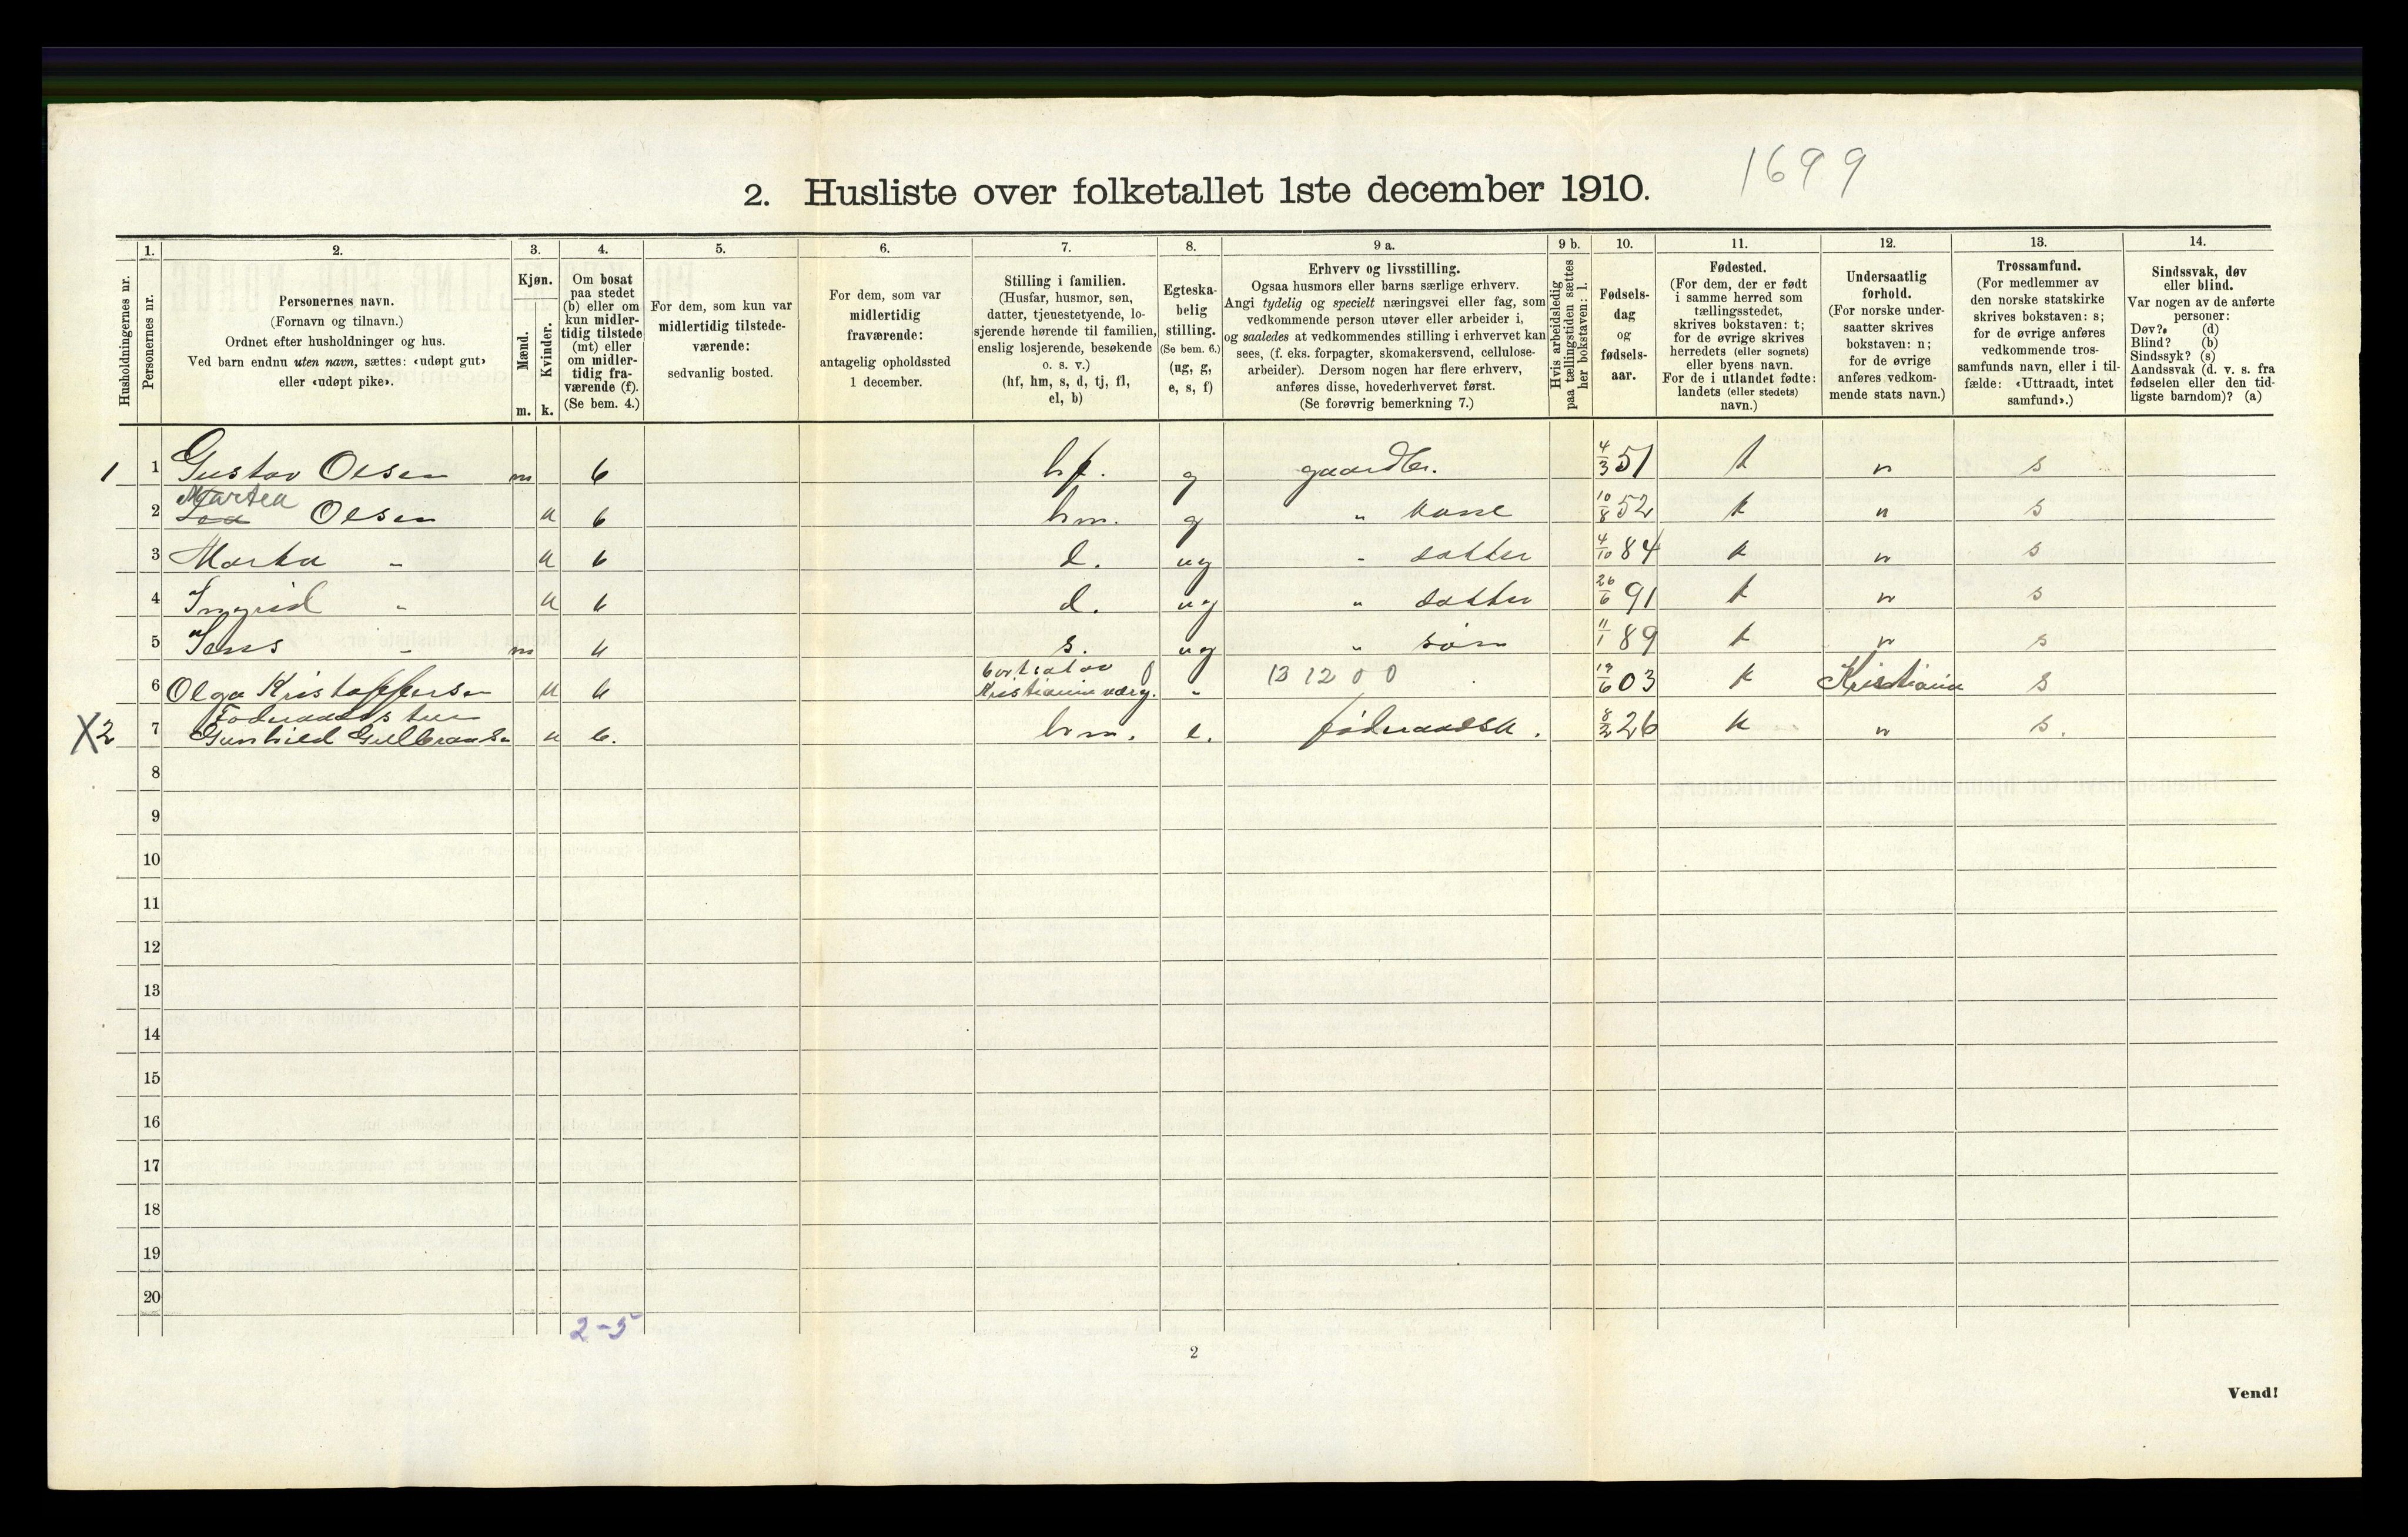 1699
2. Husliste over folketallet 1ste december 1910.
Husholdningernes nr.
1.
Personernes nr.
2.
Personernes navn.
(Fornavn og tilnavn.)
Ordnet efter husholdninger og hus.
Ved barn endnu uten navn, sættes: «udøpt gut»
eller «udøpt pike».
3.
Kjøn.
Mænd.
Kvinder.
m. k.
4.
Om bosat
paa stedet
(b) eller om
kun midler-
tidig tilstede
(mt) eller
om midler-
tidig fra-
værende (f).
(Se bem. 4.)
5.
For dem, som kun var
midlertidig tilstede-
værende:
sedvanlig bosted.
6.
For dem, som var
midlertidig
fraværende:
antagelig opholdssted
1 december.
7.
Stilling i familien.
(Husfar, husmor, søn,
datter, tjenestetyende, lo-
sjerende hørende til familien,
enslig losjerende, besøkende
o. s. v.)
(hf, hm, s, d, tj, fl,
el, b)
8.
Egteska-
belig
stilling.
(Se bem. 6.)
(ug, g,
e, s, f)
9 a.
Erhverv og livsstilling.
Ogsaa husmors eller barns særlige erhverv.
Angi tydelig og specielt næringsvei eller fag, som
vedkommende person utøver eller arbeider i,
og saaledes at vedkommendes stilling i erhvervet kan
sees, (f. eks. forpagter, skomakersvend, cellulose-
arbeider). Dersom nogen har flere erhverv,
anføres disse, hovederhvervet først.
(Se forøvrig bemerkning 7.)
9 b.
Hvis arbeidsledig
paa tællingstiden sættes
her bokstaven: l.
10.
Fødsels-
dag
og
fødsels-
aar.
11.
Fødested.
(For dem, der er født
i samme herred som
tællingsstedet,
skrives bokstaven: t;
for de øvrige skrives
herredets (eller sognets)
eller byens navn.
For de i utlandet fødte:
landets (eller stedets)
navn.)
12.
Undersaatlig
forhold.
(For norske under-
saatter skrives
bokstaven: n;
for de øvrige
anføres vedkom-
mende stats navn.)
13.
Trossamfund.
(For medlemmer av
den norske statskirke
skrives bokstaven: s;
for de øvrige anføres
vedkommende tros-
samfunds navn, eller i til-
fælde: «Uttraadt, intet
samfund».)
14.
Sindssvak, døv
eller blind.
Var nogen av de anførte
personer:
Døv? (d)
Blind? (b)
Sindssyk? (s)
Aandssvak (d. v. s. fra
fødselen eller den tid-
ligste barndom)? (a)
1 1 Gustav Olsen m b hf. g gaardbr. 4/3 51 t n s
2 Martea Olsen k b hm. g " kone 10/8 52 t n s
3 Marta " k b d. ug " datter 4/10 84 t n s
4 Ingrid " k b d. ug " datter 26/6 91 t n s
5 Jens " m b s. ug " søn 11/1 89 t n s
6 Olga Kristoffersen k b bortsat av Kristiania værg. " 13 12 0 0 19/6 03 t Kristiania s
X2 7 Føderaadsstue
Gunhild Gulbrands. k b. hm. e. føderaadsk. 8/2 26 t n s.
8
9
10
11
12
13
14
15
16
17
18
19
20
2-5
2
Vend!